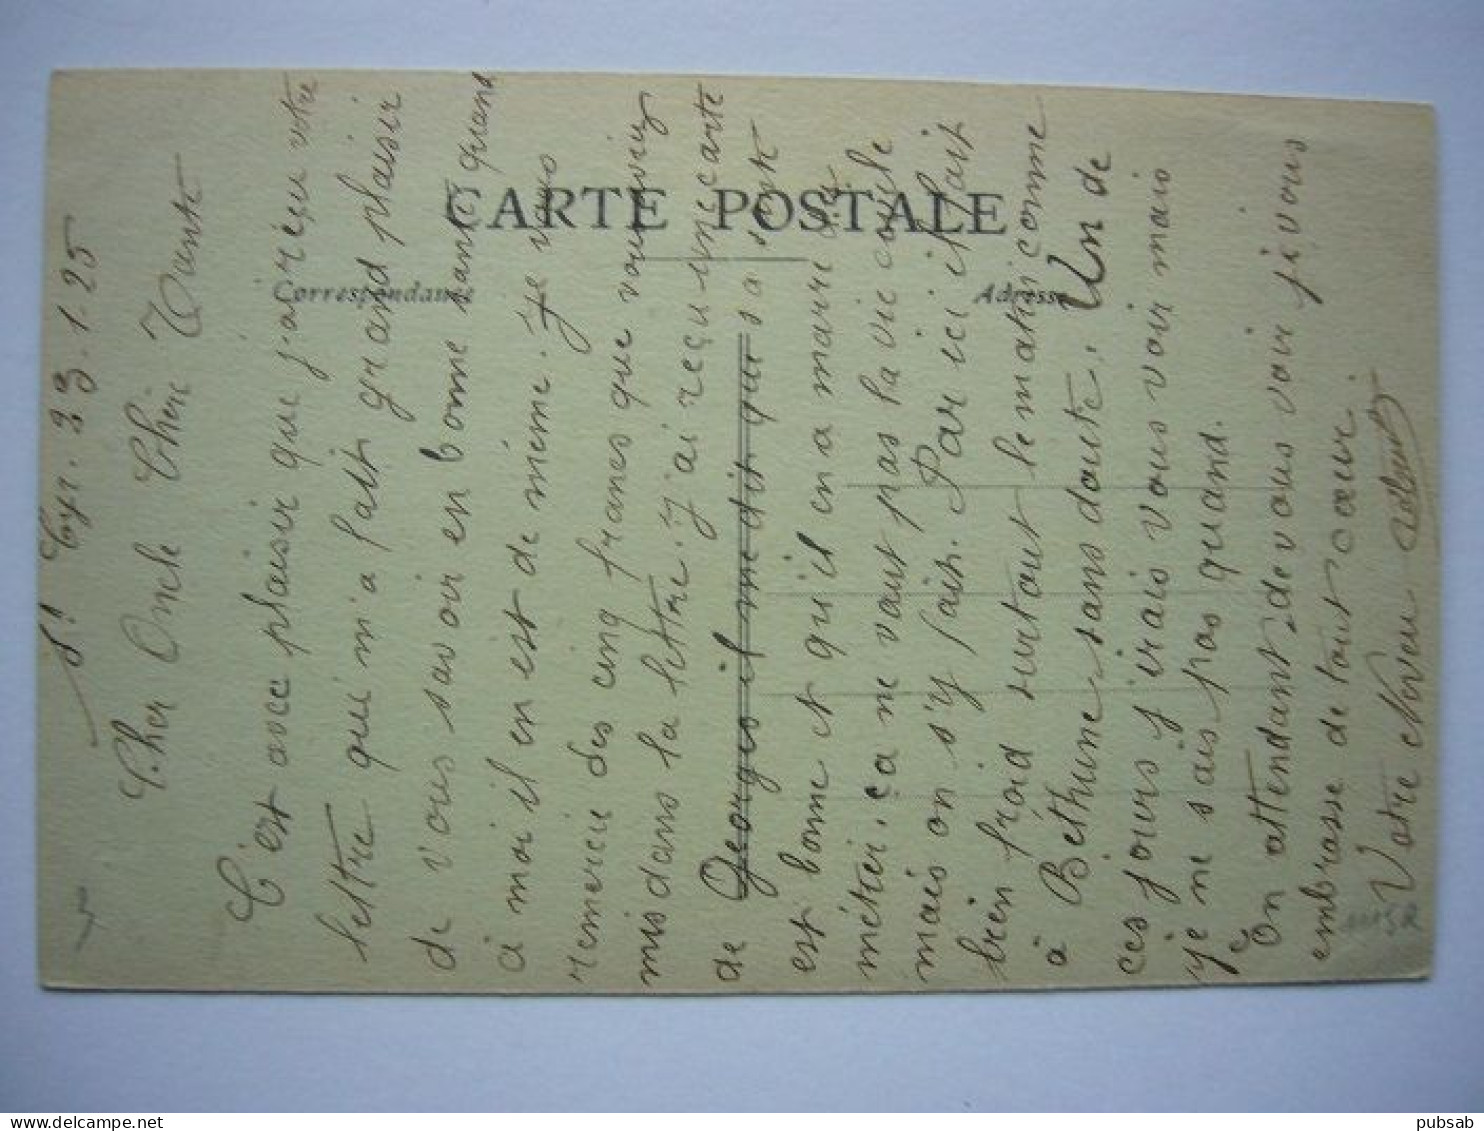 St Cyr. 23.1.25
Cher Oncle Chère Tante
C'est avec plaisir que j'ai reçu votre
lettre qui m'a fait grand plaisir
de vous savoir en bonne santé quand
à moi il en est de même. Je vous
remercie des cinq francs que vous aviez
mis dans la lettre. J'ai reçu une carte
de Georges il me dit que sa santé
est bonne et qu'il en a marre du
métier, ça ne vaut pas la vie civile
mais on s'y fait. Par ici il fait
bien froid surtout le matin comme
à Béthune sans doute. Un de
ces jours j'irais vous voir mais
je ne sais pas quand.
En attendant de vous voir je vous
embrasse de tout cœur.
Votre Neveu
CARTE POSTALE
Correspondance
Adresse
pubsab